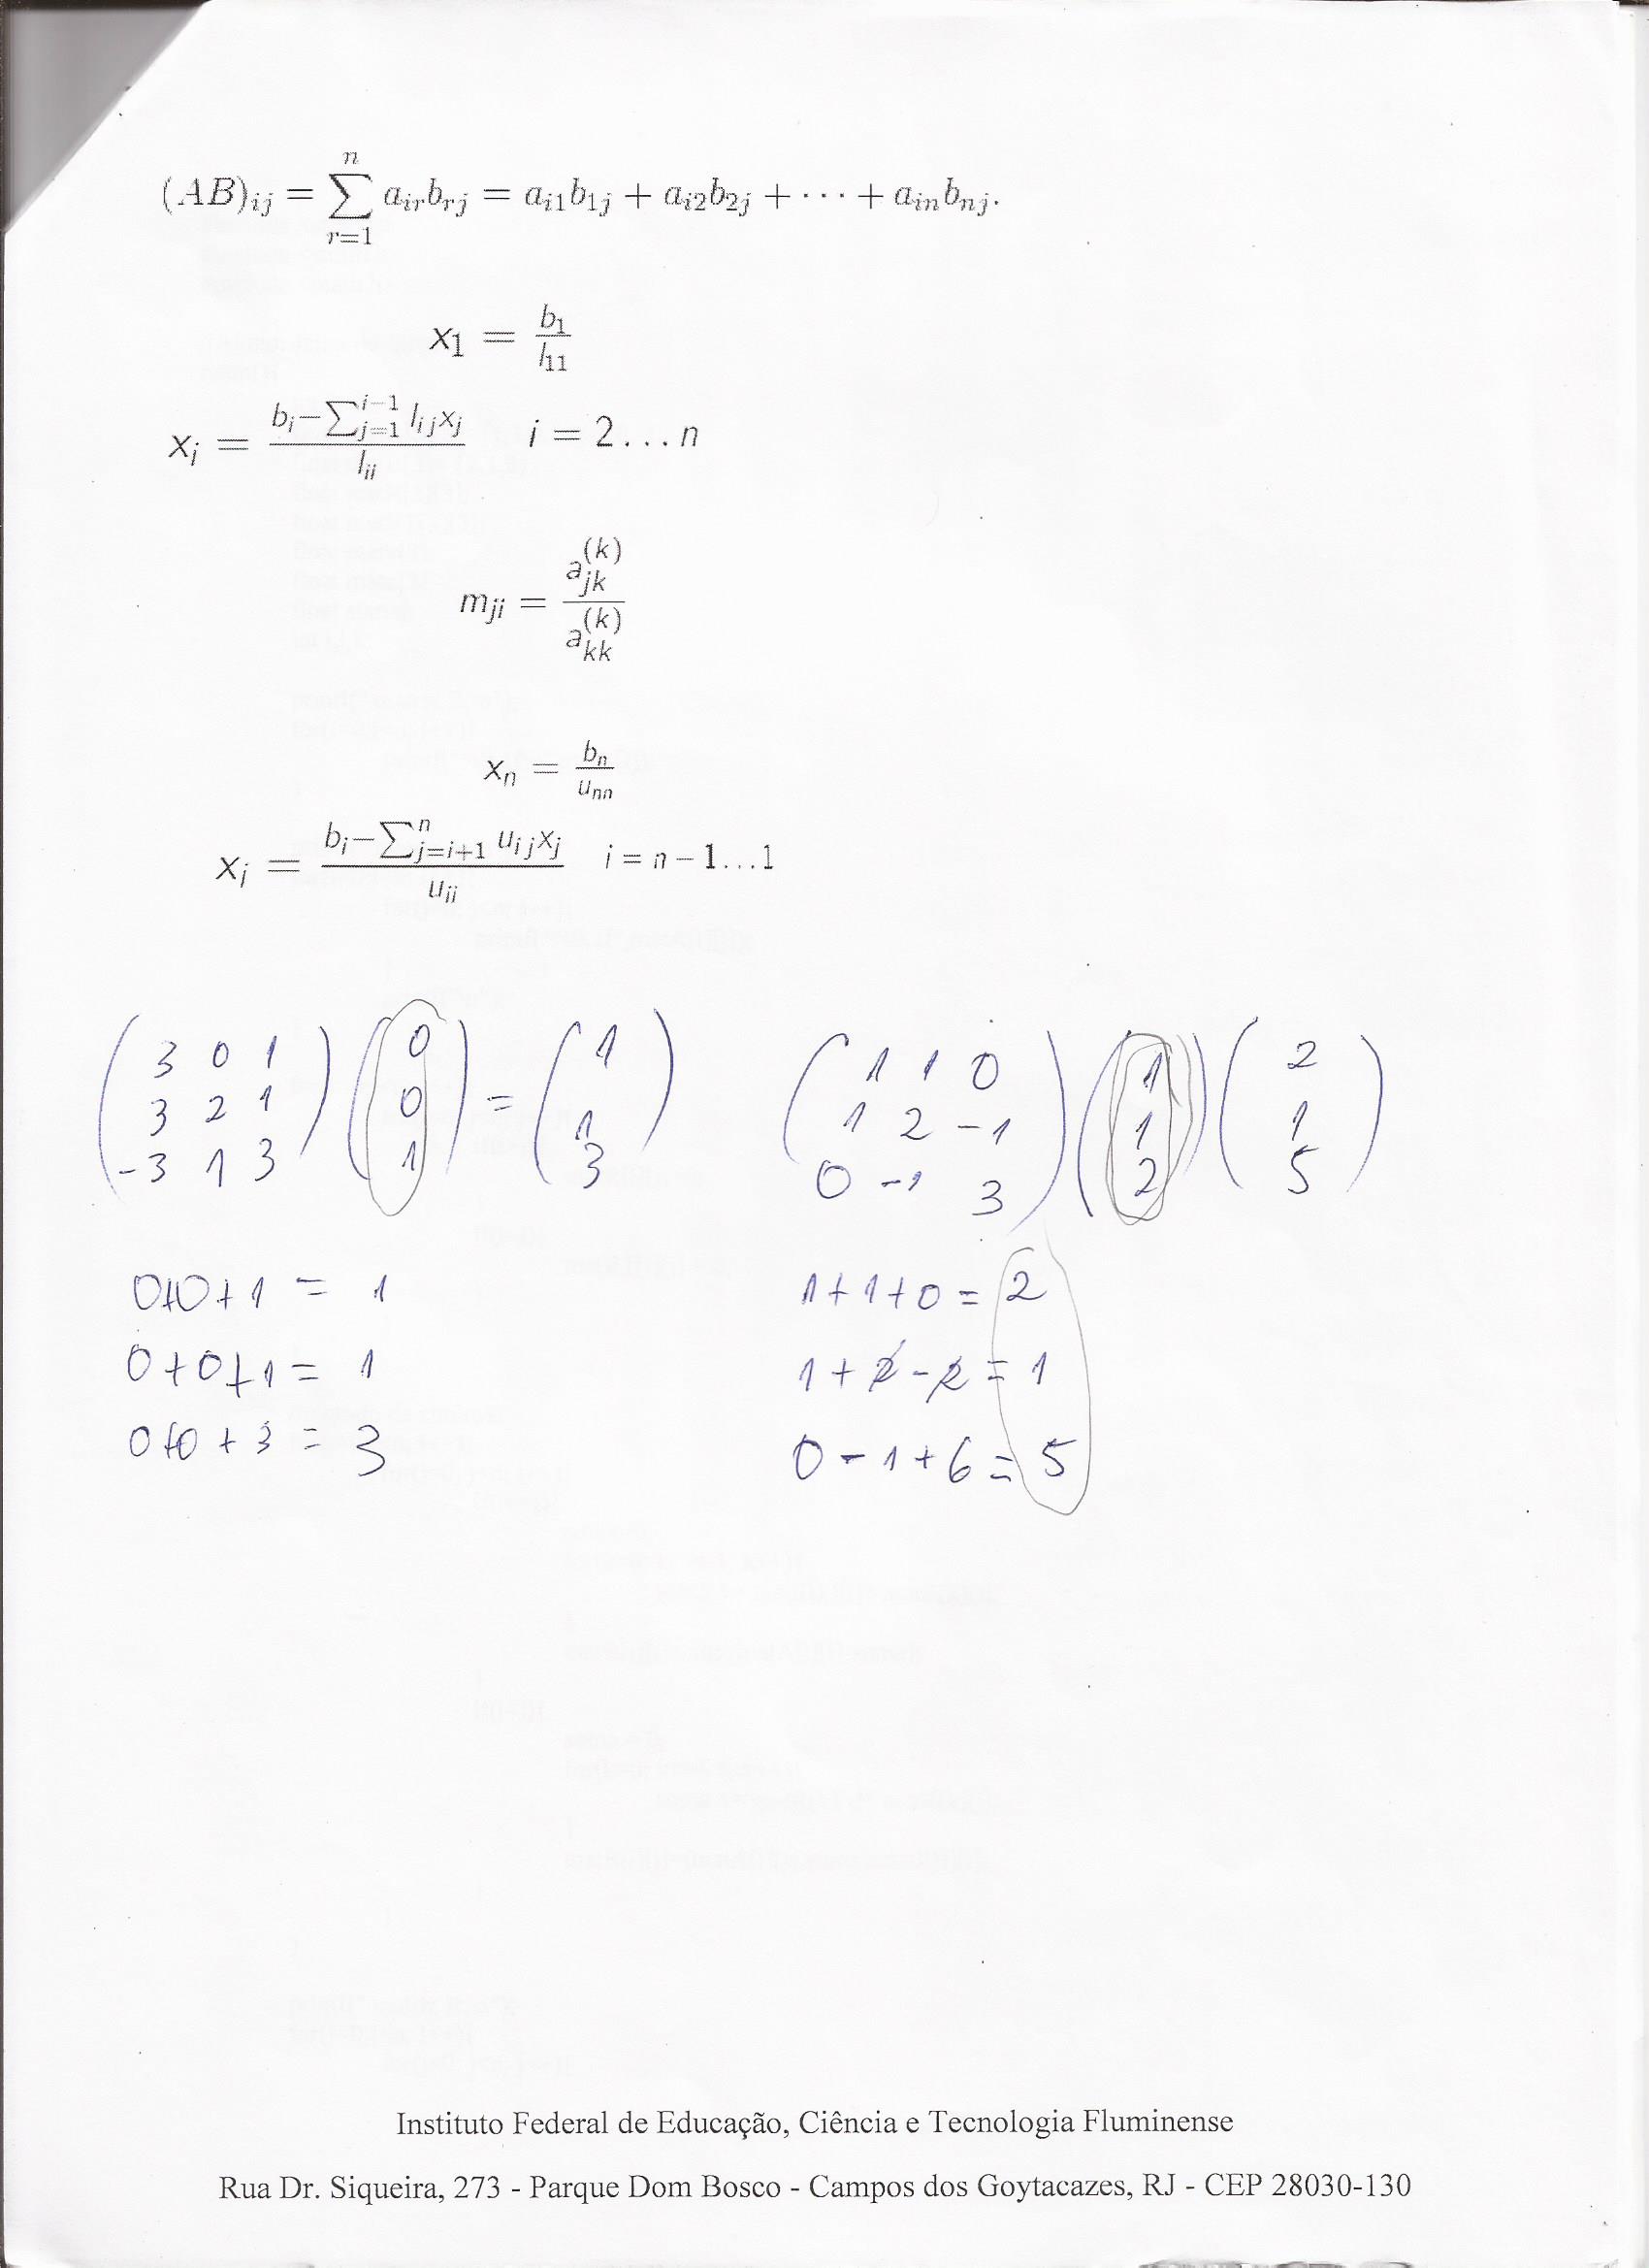 (AB)ij = ∑_{r=1}^{n} a_{ir}b_{rj} = a_{i1}b_{1j} + a_{i2}b_{2j} + ··· + a_{in}b_{nj}.
x_1 = b_1 / l_{11}
x_i = (b_i − ∑_{j=1}^{i−1} l_{ij}x_j) / l_{ii}   i = 2...n
m_{ji} = a_{jk}^{(k)} / a_{kk}^{(k)}
x_n = b_n / u_{nn}
x_i = (b_i − ∑_{j=i+1}^{n} u_{ij}x_j) / u_{ii}   i = n − 1...1
( 3 0 1 ) ( 0 ) = ( 1 )   ( 1 1 0 ) ( 1 ) ( 2 )
( 3 2 1 ) ( 0 ) ( 1 )   ( 1 2 -1 ) ( 1 ) ( 1 )
( -3 1 3 ) ( 1 ) ( 3 )   ( 0 -1 3 ) ( 2 ) ( 5 )
0+0+1 = 1   1+1+0 = 2
0+0+1 = 1   1+2-2 = 1
0+0+3 = 3   0-1+6 = 5
Instituto Federal de Educação, Ciência e Tecnologia Fluminense
Rua Dr. Siqueira, 273 - Parque Dom Bosco - Campos dos Goytacazes, RJ - CEP 28030-130